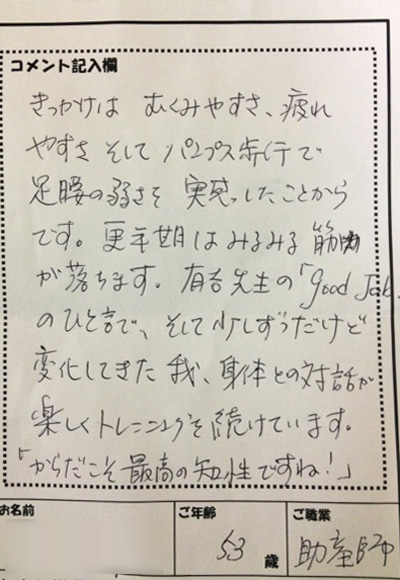 コメント記入欄
きっかけは むくみやすさ、疲れ
やすさ そして パンプス歩行で
足腰の弱さを 実感したことから
です。更年期はみるみる 筋肉
が落ちます。有吉先生の「good Job」
のひと言で、そして少しずつだけど
変化してきた 我、身体との対話が
楽しくトレーニングを続けています。
「からだこそ最高の知性ですね!」
お名前 ご年齢 ご職業
53 歳 助産師